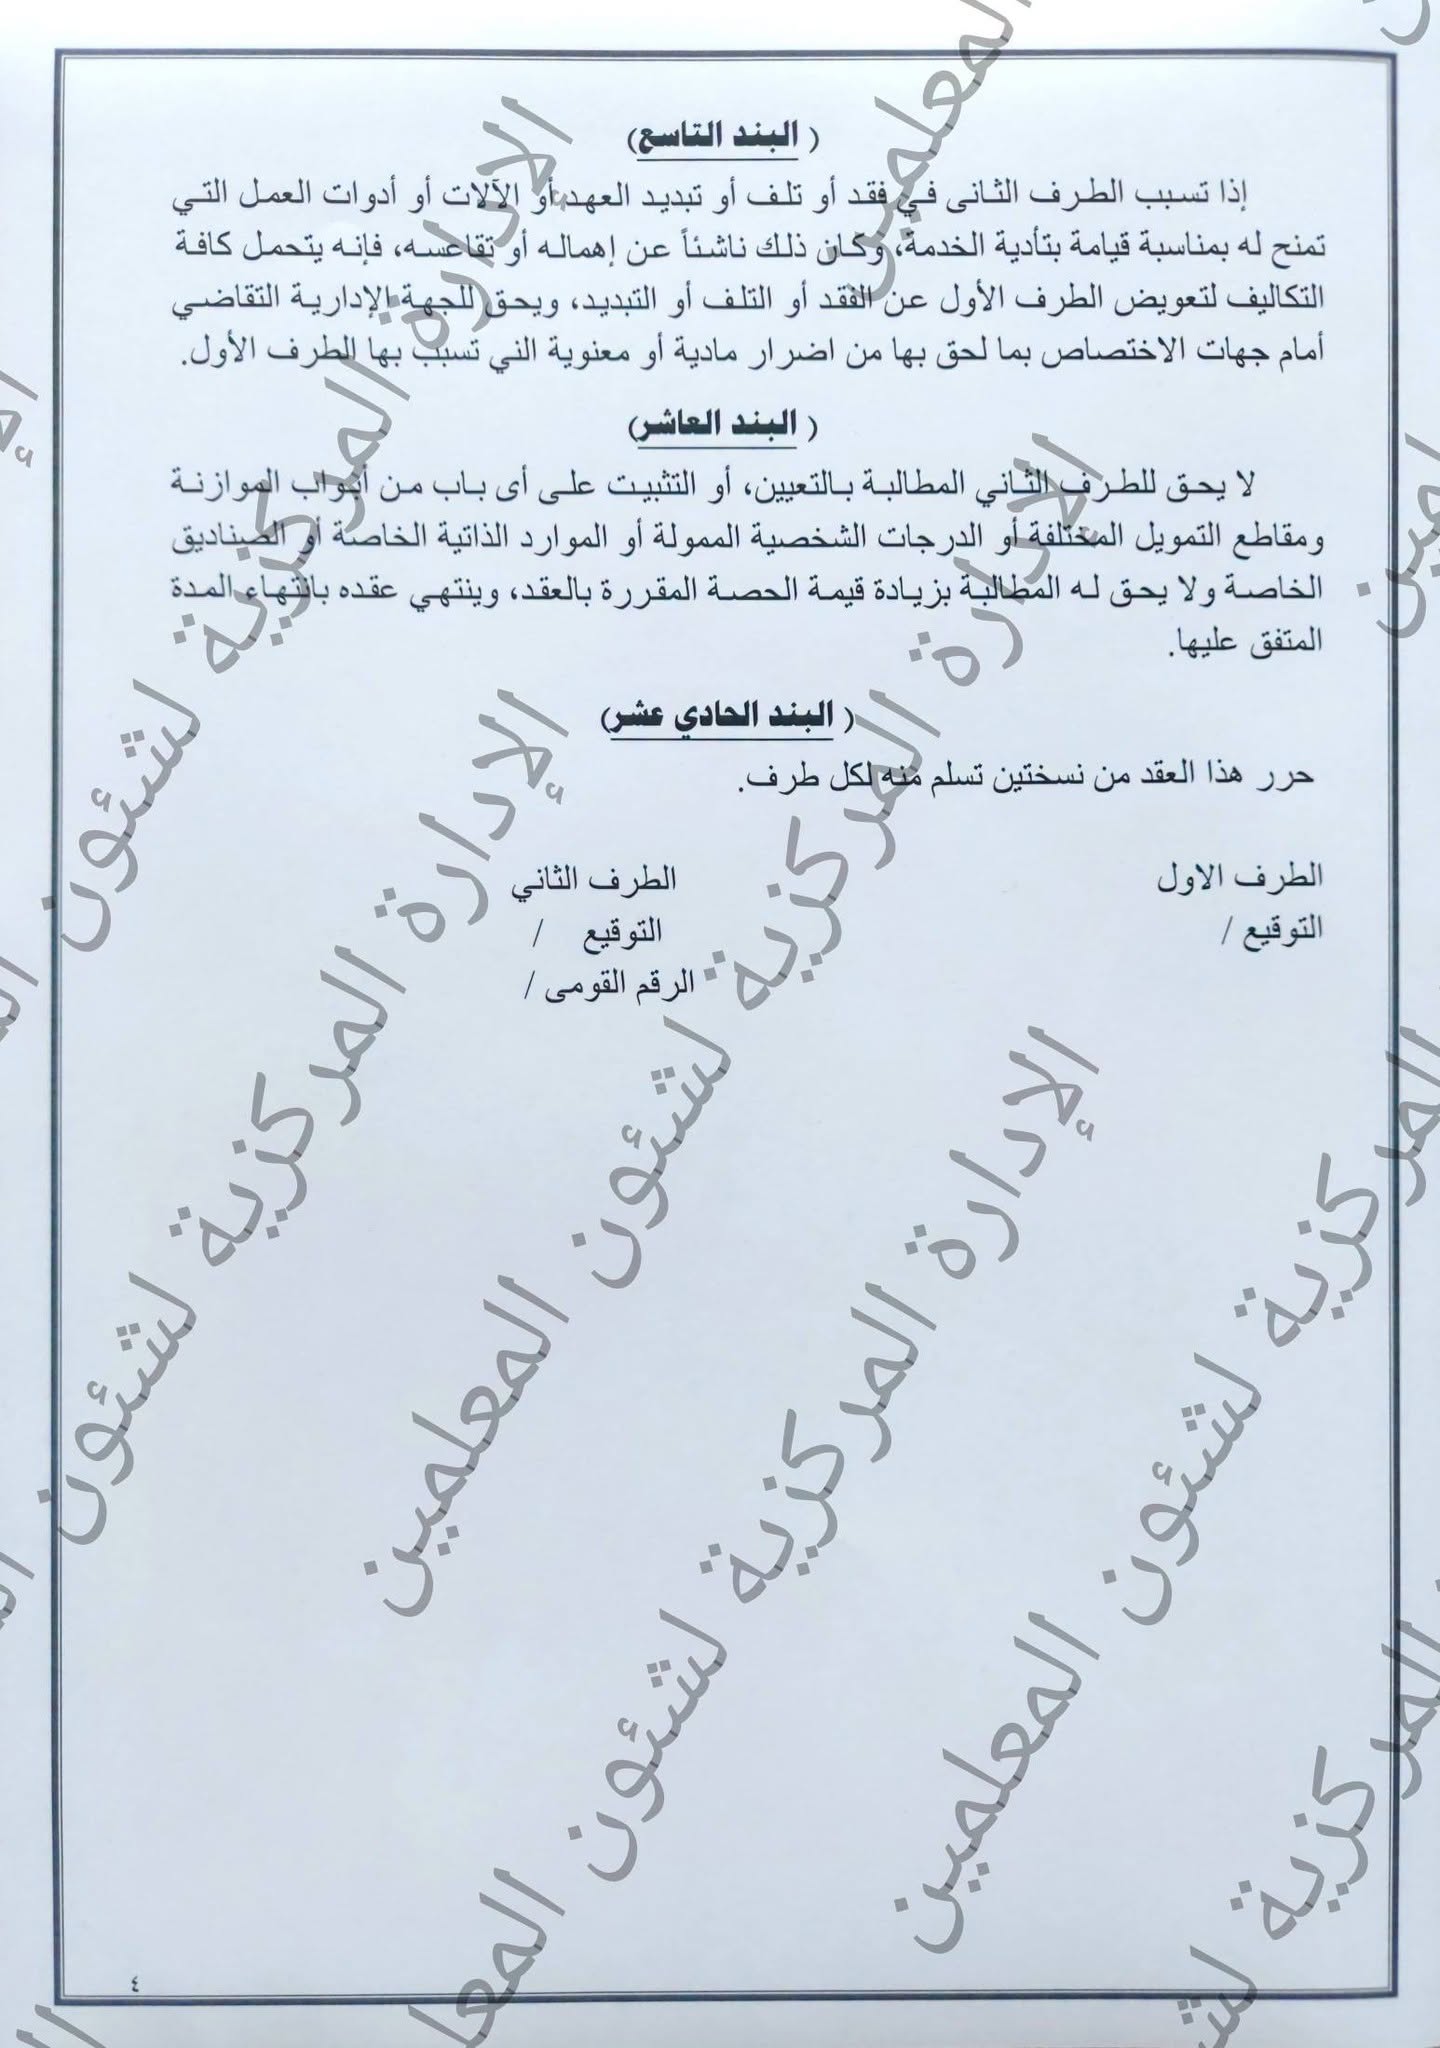 ( البند التاسع)
إذا تسبب الطرف الثانى في فقد أو تلف أو تبديد العهد أو الآلات أو أدوات العمل التي
تمنح له بمناسبة قيامة بتأدية الخدمة، وكان ذلك ناشئاً عن إهماله أو تقاعسه، فإنه يتحمل كافة
التكاليف لتعويض الطرف الأول عن الفقد أو التلف أو التبديد، ويحق للجهة الإدارية التقاضي
أمام جهات الاختصاص بما لحق بها من اضرار مادية أو معنوية التي تسبب بها الطرف الأول.
( البند العاشر)
لا يحق للطرف الثاني المطالبة بالتعيين، أو التثبيت على أى باب من أبواب الموازنة
ومقاطع التمويل المختلفة أو الدرجات الشخصية الممولة أو الموارد الذاتية الخاصة أو الصناديق
الخاصة ولا يحق له المطالبة بزيادة قيمة الحصة المقررة بالعقد، وينتهي عقده بانتهاء المدة
المتفق عليها.
( البند الحادي عشر)
حرر هذا العقد من نسختين تسلم منه لكل طرف.
الطرف الاول
التوقيع /
الطرف الثاني
التوقيع /
الرقم القومى /
٤
الإدارة المركزية لشئون المعلمين
الإدارة المركزية لشئون المعلمين
الإدارة المركزية لشئون المعلمين
الإدارة المركزية لشئون المعلمين